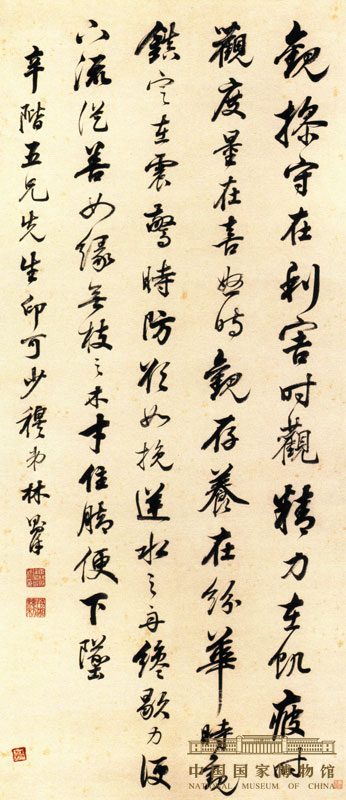 觀操守在利害时觀精力在飢疲时
觀度量在喜怒时觀存養在紛華時觀
鎮定在震驚時防欲如挽逆水之舟纔歇力便
下流從善如緣無枝之木才住腳便下墜
辛階五兄先生印可少穆弟林則徐
中国国家博物馆
NATIONAL MUSEUM OF CHINA